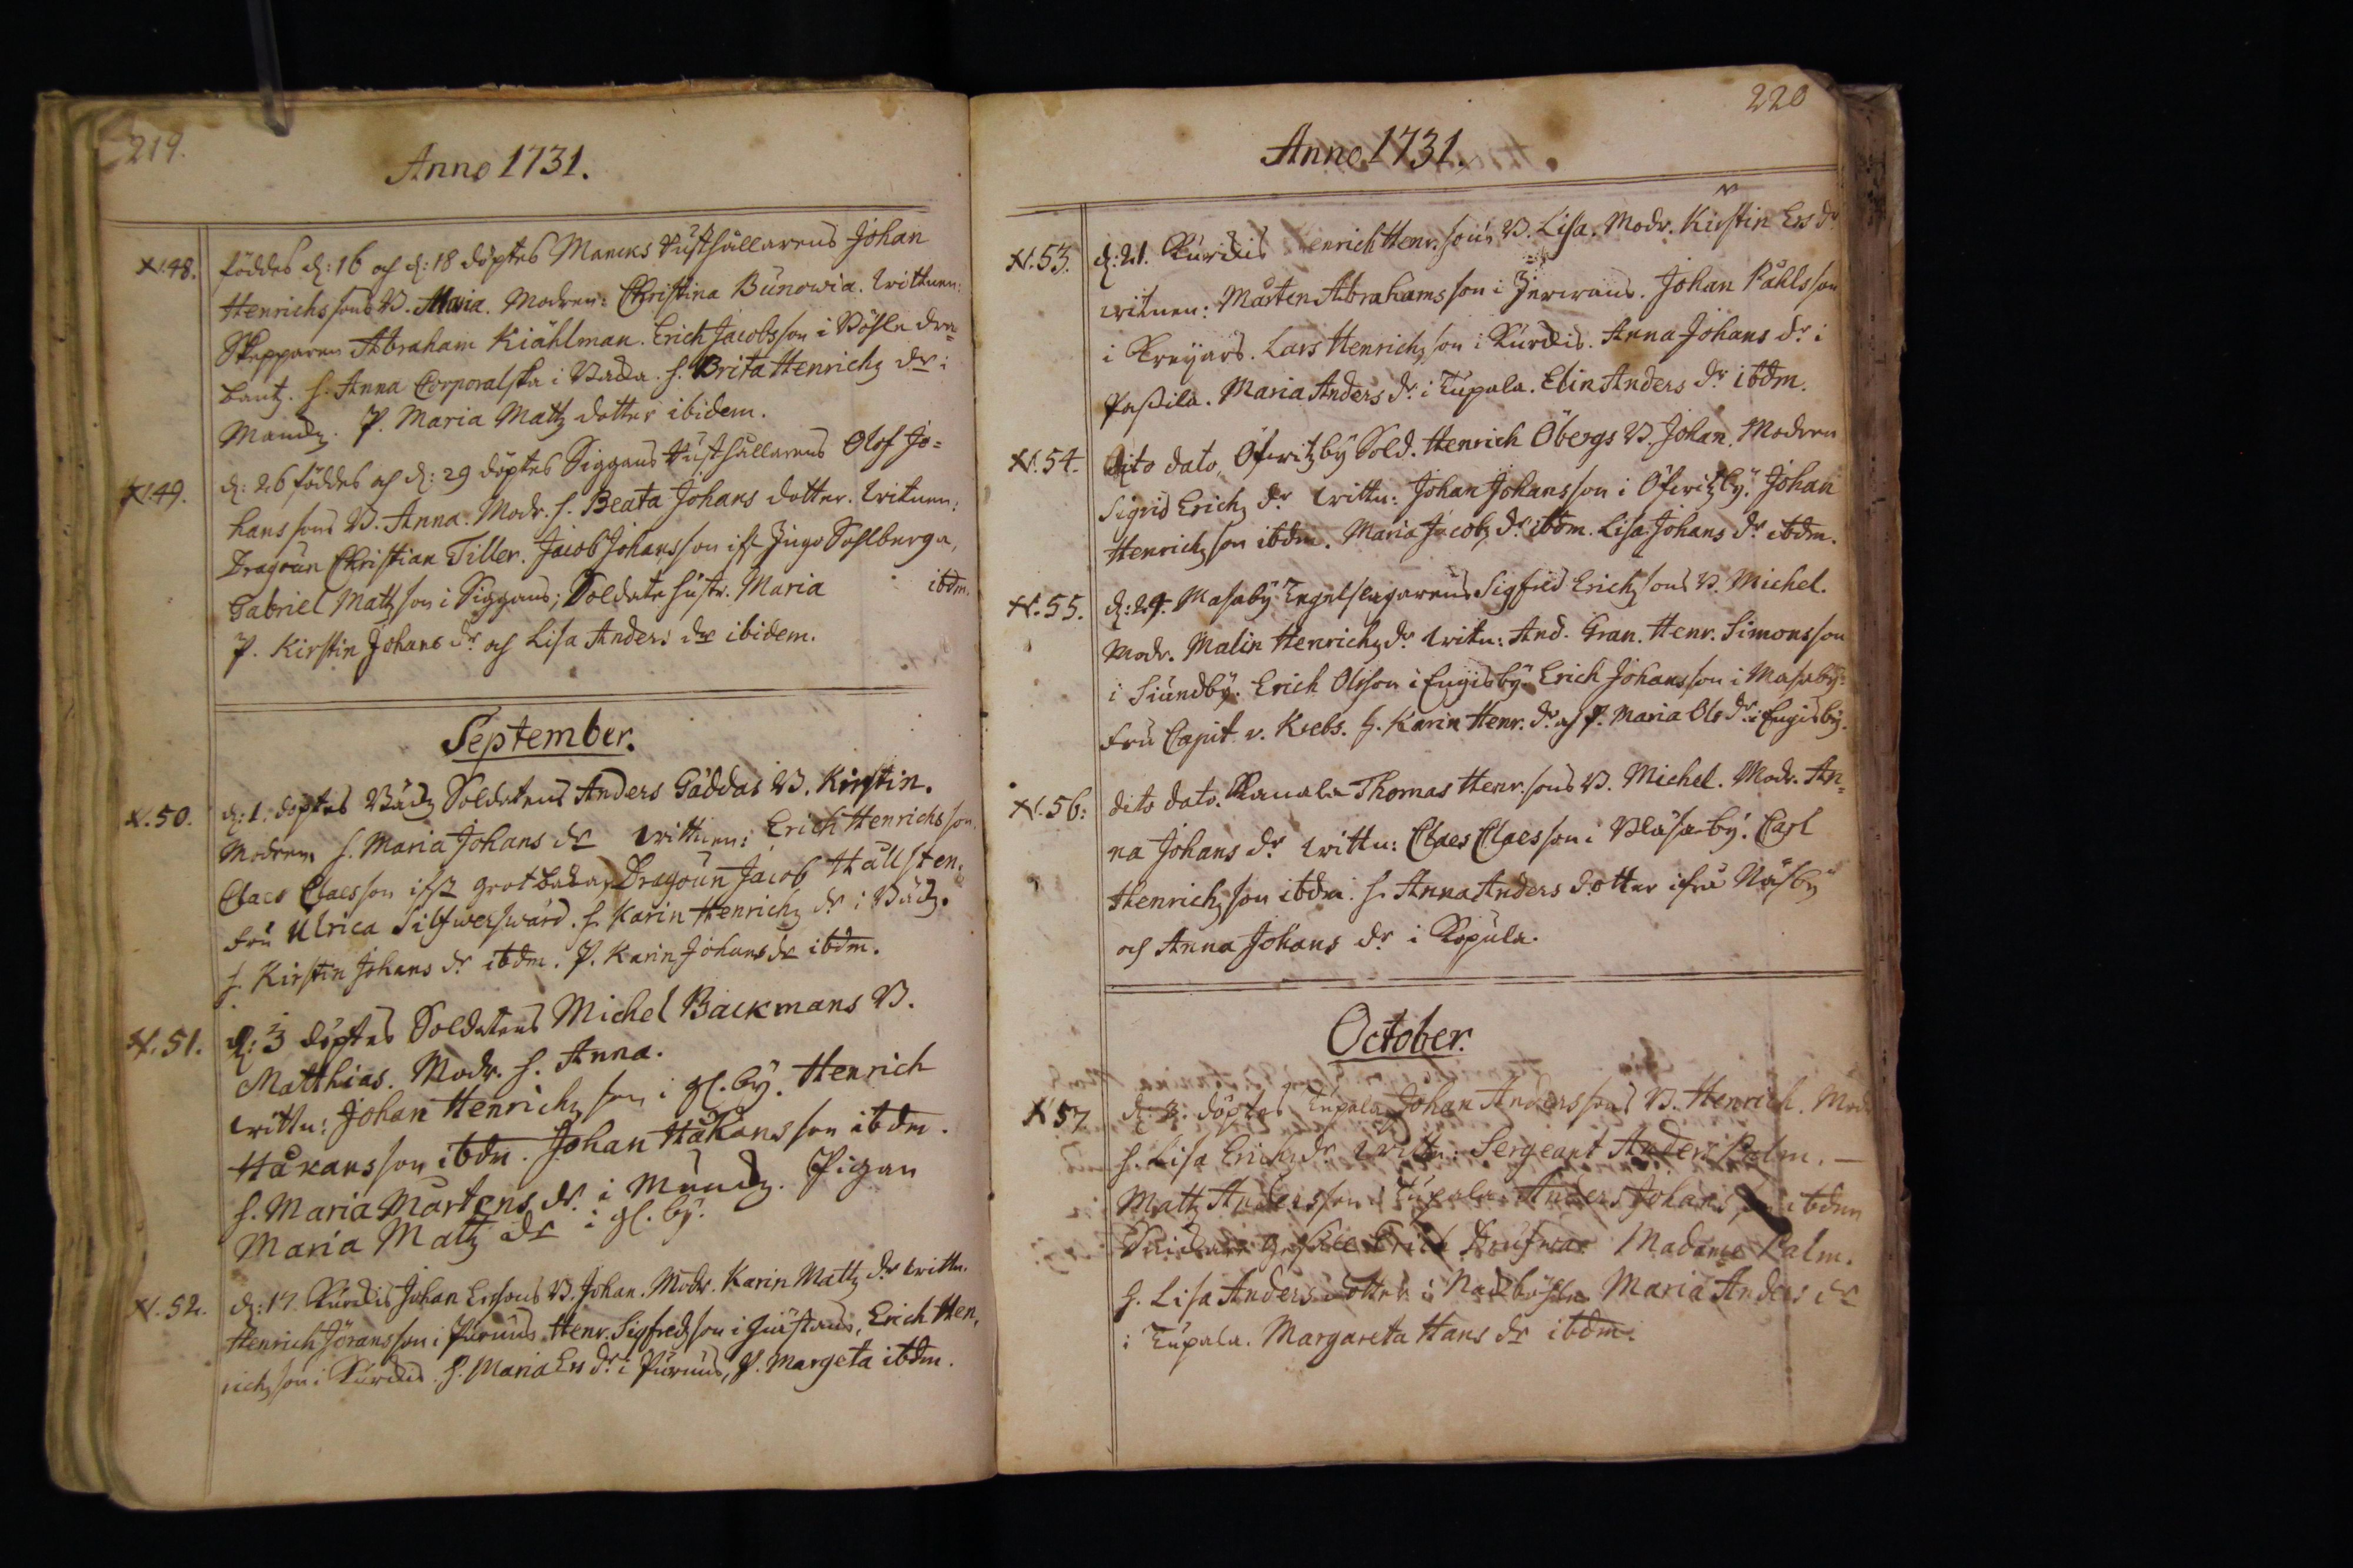 219.
Anno 1731.
N. 48. föddes d: 16 och d: 18 döptes Mancks Rusthållarens Johan
Henrichssons B. Maria. Modren: Christina Bunowia. Wittnen:
Skepparen Abraham Kiählman. Erich Jacobsson i Böhle dra-
bantz. h. Anna Corporalska i Badda. h. Brita Henrichz dr i
Manckz. P. Maria Mattz dotter ibidem.
N. 49. d: 26 föddes och d: 29 döptes Siggans Rusthållarens Olof Jo=
hanssons B. Anna. Modr. h. Beata Johans dotter. Witnen:
Dragoun Christian Tiller. Jacob Johansson ifr. Inga Sohlberga,
Gabriel Mattzson i Siggans; Soldate hustr. Maria ibdm.
P. Kirstin Johans dr och Lisa Anders dr ibidem.
September.
N. 50. d: 1. döptes Bådz Soldatens Anders Gäddas B. Kirstin.
Modren h. Maria Johans dr Wittnen: Erich Henrichsson
Claes Claesson ifr. Dragoun Jacob Hällsten.
Fru Ulrica Silfwerswärd. h. Karin Henrichz dr i Bådz.
h. Kirstin Johans dr ibdm. P. Karin Johans dr ibdm.
N. 51. d: 3 döptes Soldatens Michel Backmans B.
Matthias. Modr. h. Anna.
Wittn: Johan Henrichz son i gl. by. Henrich
Håkansson ibdm. Johan Håkansson ibdm.
h. Maria Mårtens dr. i Munckz. Pigan
Maria Mattz dr i gl. by.
N. 52. d: 17. Kurckis Johan Erssons B. Johan. Modr. Karin Mattz dr Wittn.
Henrich Jöransson i Purnus Henr. Sigfredzson i Giästans, Erich Hen,
richzson i Kurckis. h. Maria Ers dr i Purnus, P. Margeta ibdm.
220
Anno 1731.
N. 53. d: 21. Kurckis Henrich Henr. sons B. Lisa. Modr. Kirstin Ers dr
Witnen: Mårten Abrahamsson i Jerwans. Johan Påhlsson
i Kreijars. Lars Henrichzson i Kurckis. Anna Johans dr i
Passila. Maria Anders dr i Tupala. Elin Anders dr ibdm.
N. 54. Dito dato, Öfwitzby Sold. Henrich Öbergs B. Johan. Modren
Sigrid Erichz dr Wittn: Johan Johansson i Öfwitzby. Johan
Henrichzson ibdm. Maria Jacobz dr ibdm. Lisa Johans dr ibdm.
N. 55. d: 24. Masaby Tegelslagarens Sigfrid Erichzsons B. Michel.
Modr. Malin Henrichz dr Witn: And. Gran. Henr. Simonsson
i Siundby. Erich Olsson i Engisby Erich Johansson i Masaby.
Fru Capit. v. Krebs. h. Karin Henr. dr och P. Maria Ols dr i Engisby.
N. 56: dito dato. Kanala Thomas Henr. sons B. Michel. Modr. An=
na Johans dr Wittn: Claes Claesson i Bläsaby. Carl
Henrichzson ibdm. h. Anna Anders dotter ifrå Näsby
och Anna Johans dr i Kopula.
October.
N. 57 d: 3. döptes Tupala Johan Anderssons B. Henrich. Modr
h. Lisa Erichz dr Wittn: Sergeant Anders Palm. —
Mattz Andersson i Tupala. Anders Johans son ibdm
Erich Madame Palm.
h. Lisa Anders dotter i Nackböhle. Maria Anders dr
i Tupala. Margareta Hans dr ibdm.